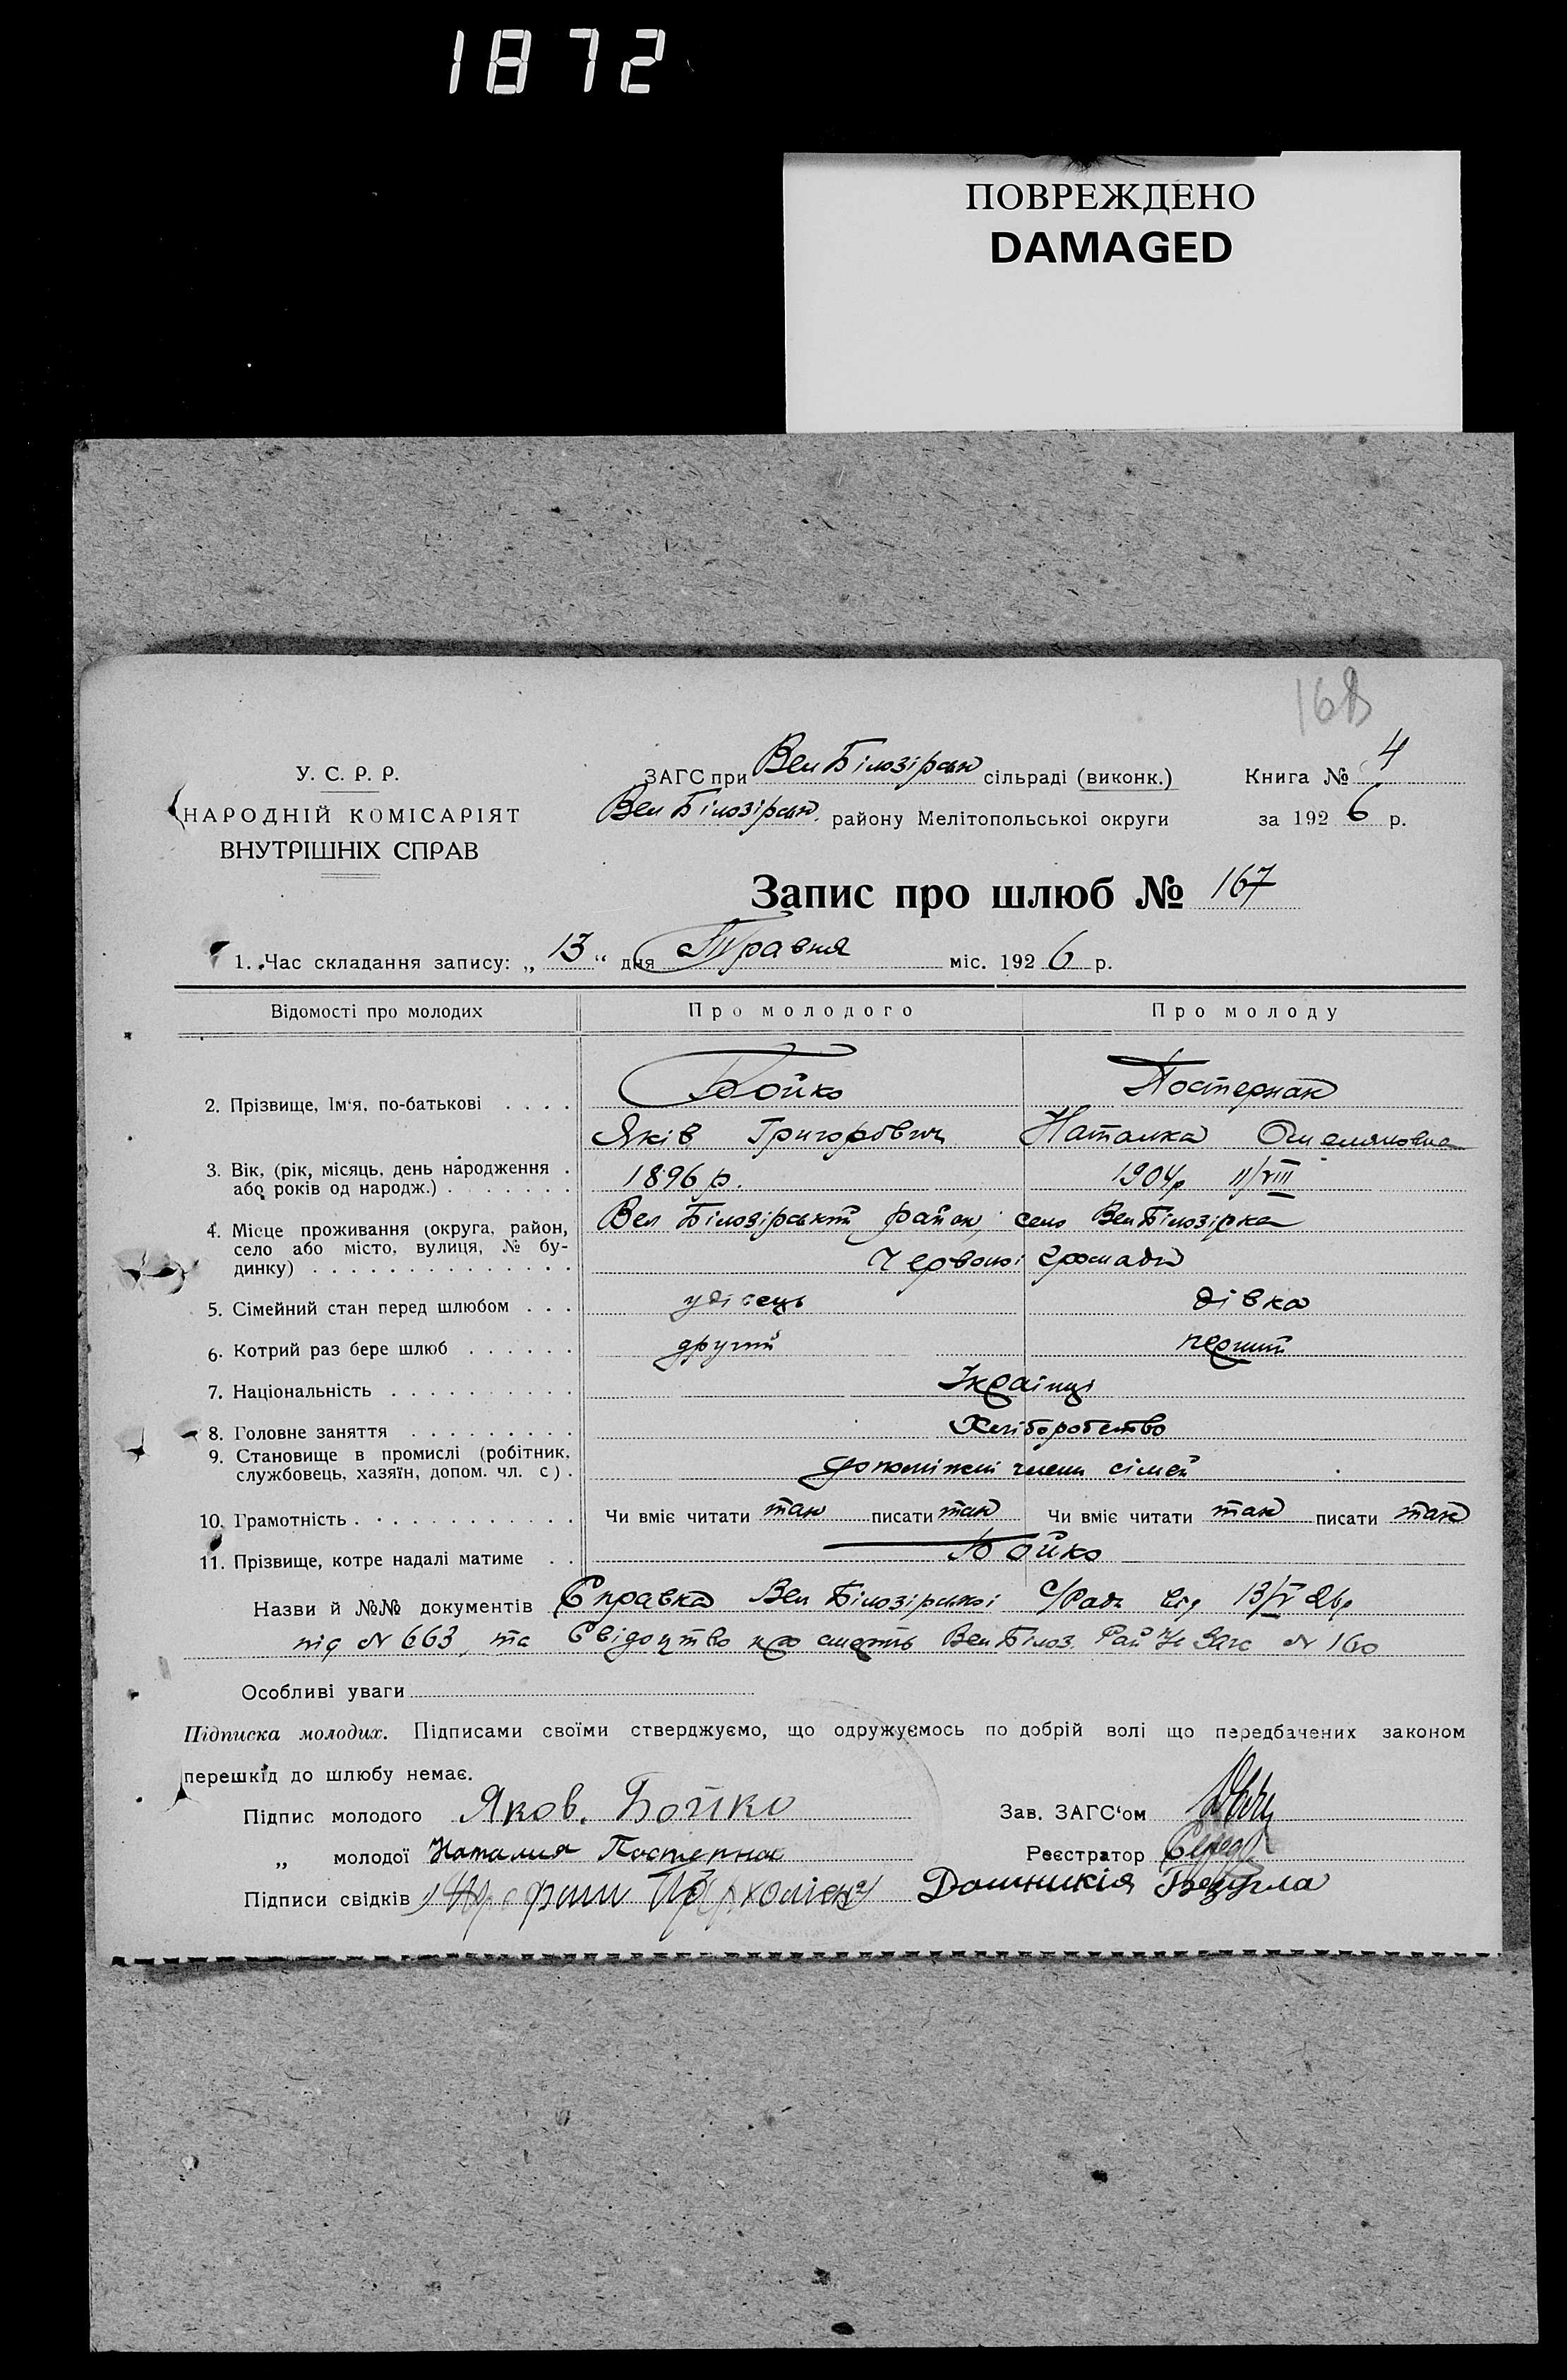 1872
ПОВРЕЖДЕНО
DAMAGED
168
У. С. Р. Р.
НАРОДНІЙ КОМІСАРІЯТ
ВНУТРІШНІХ СПРАВ
ЗАГС при Вел Білозірськ сільраді (виконк.) Книга № 4
Вел Білозірськ. району Мелітопольської округи за 1926 р.
Запис про шлюб № 167
1. Час складання запису: „13“ дня Травня міс. 1926 р.
Відомості про молодих Про молодого Про молоду
2. Прізвище, Ім'я, по-батькові . . . . Бойко Постернак
Яків Григорович Наталка Омеляновна
3. Вік, (рік, місяць, день народження . 1896 р. 1904р 11/VIII
або років од народж.) . . . . . . .
4. Місце проживання (округа, район, Вел Білозірський район село Вел Білозірка
село або місто, вулиця, № бу-
динку) . . . . . . . . . . . . . . Червоної громади
5. Сімейний стан перед шлюбом . . . удівець дівка
6. Котрий раз бере шлюб . . . . . . другий перший
7. Національність . . . . . . . . . . Українці
8. Головне заняття . . . . . . . . . Хліборобство
9. Становище в промислі (робітник,
службовець, хазяїн, допом. чл. с) . допоміжні члени сімей
10. Грамотність . . . . . . . . . . . . Чи вміє читати так писати так Чи вміє читати так писати так
11. Прізвище, котре надалі матиме . . Бойко
Назви й №№ документів Справка Вел Білозірської С/Ради від 13/V 26р
під № 663, та Свідоцтво про смерть Вел Білоз. Рай Загс № 160
Особливі уваги
Підписка молодих. Підписами своїми стверджуємо, що одружуємось по добрій волі що передбачених законом
перешкід до шлюбу немає.
Підпис молодого Яков. Бойко Зав. ЗАГС'ом
„ молодої Наталия Постернак Реєстратор Середа
Підписи свідків Безугла